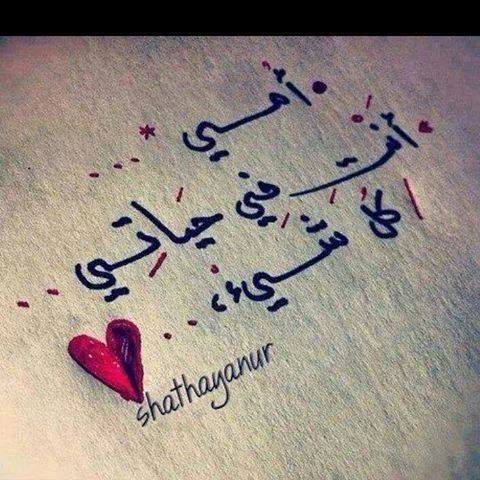 أمي ...
أنتِ في حياتي ..
كل شيء، ...
shathayanur